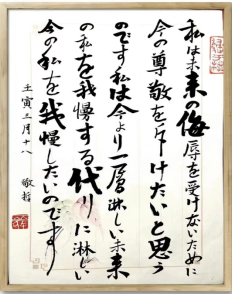 私は未来の侮辱を受けないために
今の尊敬を斥けたいと思う
のです私は今より一層淋しい未来
の私を我慢する代りに淋しい
今の私を我慢したいのです
壬寅三月十八
敬哲